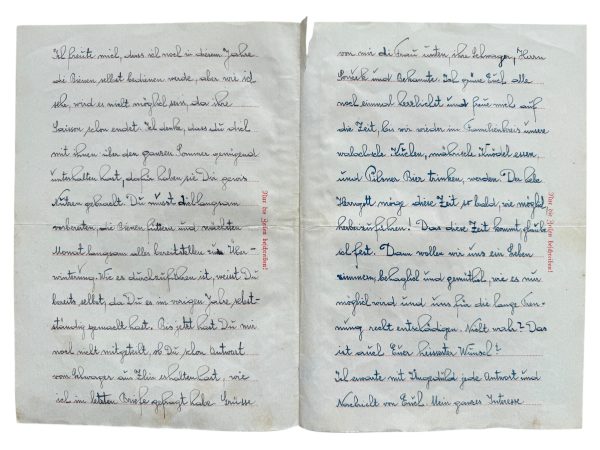 Ich freute mich, dass ich noch in diesem Jahre
die Bienen selbst bedienen werde, aber wie ich
sehe, wird es nicht möglich sein, da ihre
Saison schon endet. Ich denke, dass du dich
mit ihnen über den ganzen Sommer genügend
unterhalten hast, dafür haben sie Dir gewis
Nutzen gebracht. Du musst dich langsam
vorbereiten, die Bienen füttern und nächsten
Monat langsam alles bereitstellen zur Über-
winterung. Wie es durchzuführen ist, weisst Du
bereits selbst, da Du es im vorigen Jahre selbst-
ständig gemacht hast. Bis jetzt hast Du mir
noch nicht mitgeteilt, ob Du schon Antwort
vom Schwager aus Zlin erhalten hast, wie
ich im letzten Briefe gefragt habe. Grüsse
Nur die Zeilen beschreiben!
von mir die Frau unten, ihre Schwager, Herrn
und Bekannte. Ich grüsse Euch alle
noch einmal herzlichst und freue mich auf
die Zeit, bis wir wieder im Familienkreis unsere
walachische Kuchen, mährische Knödel essen,
und Pilsner Bier trinken, werden. Der liebe
Herrgott möge diese Zeit so bald, wie möglich
herbeizuführen! Dass diese Zeit kommt, glaube
ich fest. Dann wollen wir uns ein Leben
zimmern, behaglich und gemütlich, wie es nur
möglich wird und uns für die lange Tren-
nung recht entschädigen. Nicht wahr? Das
ist auch Euer heissester Wunsch!
Ich erwarte mit Ungeduld jede Antwort und
Nachricht von Euch. Mein ganzes Interesse
Nur die Zeilen beschreiben!